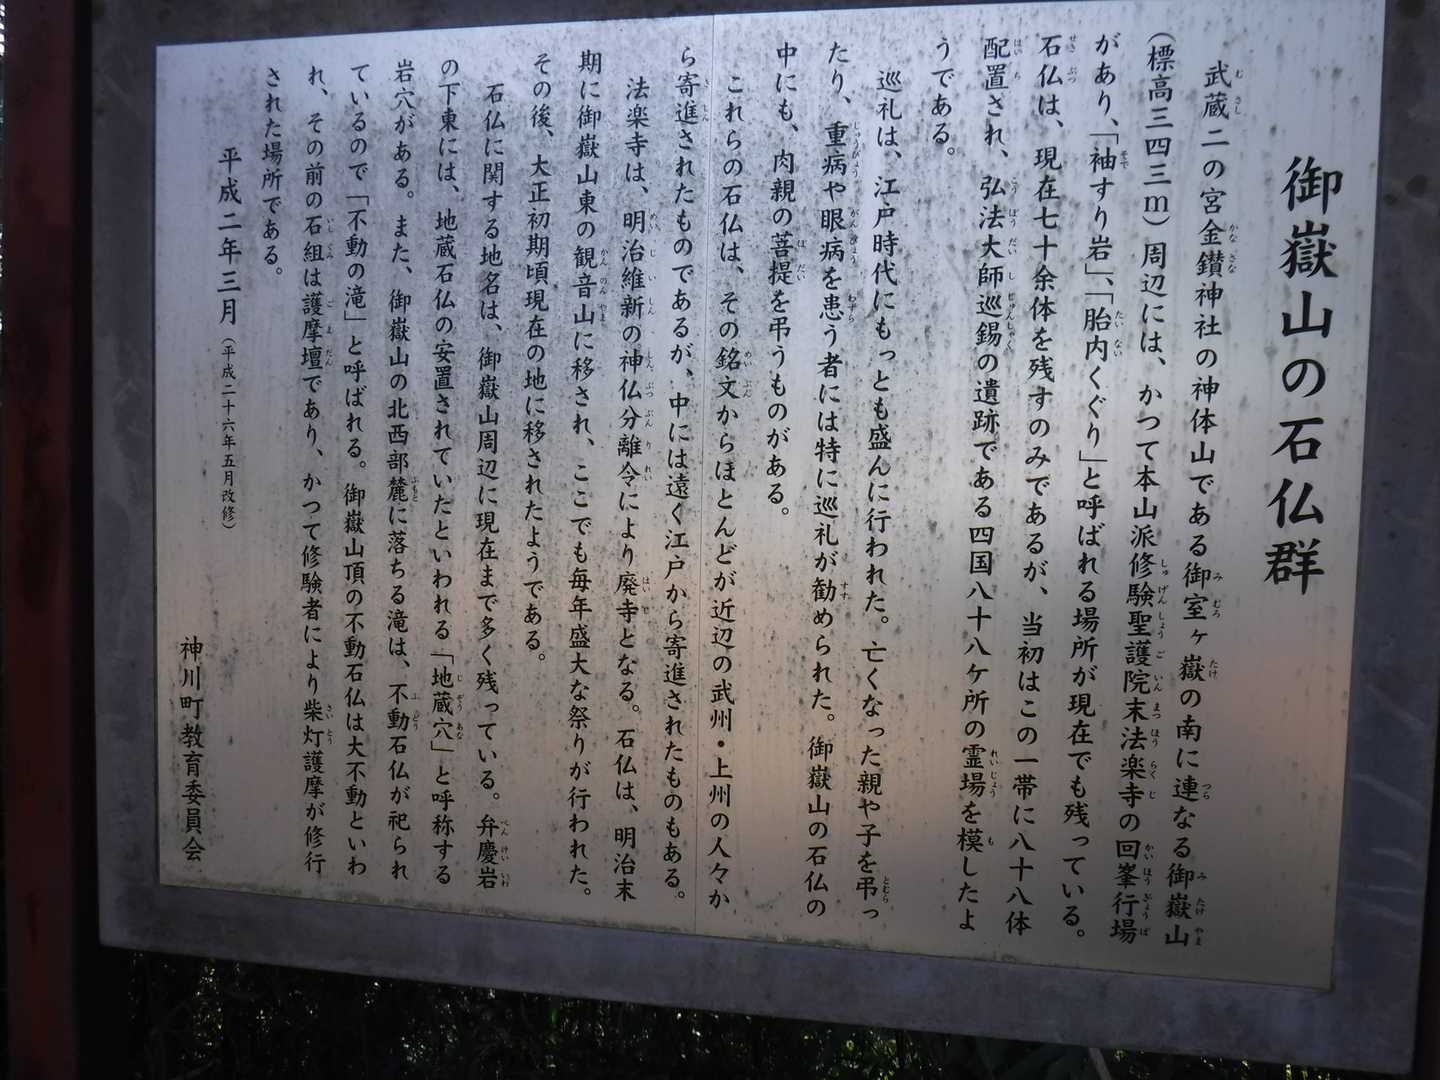 御嶽山の石仏群
武蔵二の宮金鑚神社の神体山である御室ヶ嶽の南に連なる御嶽山
(標高三四三m)周辺には、かつて本山派修験聖護院末法楽寺の回峯行場
があり、「袖すり岩」、「胎内くぐり」と呼ばれる場所が現在でも残っている。
石仏は、現在七十余体を残すのみであるが、当初はこの一帯に八十八体
配置され、弘法大師巡錫の遺跡である四国八十八ヶ所の霊場を模したよ
うである。
巡礼は、江戸時代にもっとも盛んに行われた。亡くなった親や子を弔っ
たり、重病や眼病を患う者には特に巡礼が勧められた。御嶽山の石仏の
中にも、肉親の菩提を弔うものがある。
これらの石仏は、その銘文からほとんどが近辺の武州・上州の人々か
ら寄進されたものであるが、中には遠く江戸から寄進されたものもある。
法楽寺は、明治維新の神仏分離令により廃寺となる。石仏は、明治末
期に御嶽山東の観音山に移され、ここでも毎年盛大な祭りが行われた。
その後、大正初期頃現在の地に移されたようである。
石仏に関する地名は、御嶽山周辺に現在まで多く残っている。弁慶岩
の下東には、地蔵石仏の安置されていたといわれる「地蔵穴」と呼称する
岩穴がある。また、御嶽山の北西部麓に落ちる滝は、不動石仏が祀られ
ているので「不動の滝」と呼ばれる。御嶽山頂の不動石仏は大不動といわ
れ、その前の石組は護摩壇であり、かつて修験者により柴灯護摩が修行
された場所である。
平成二年三月(平成二十六年五月改修)
神川町教育委員会